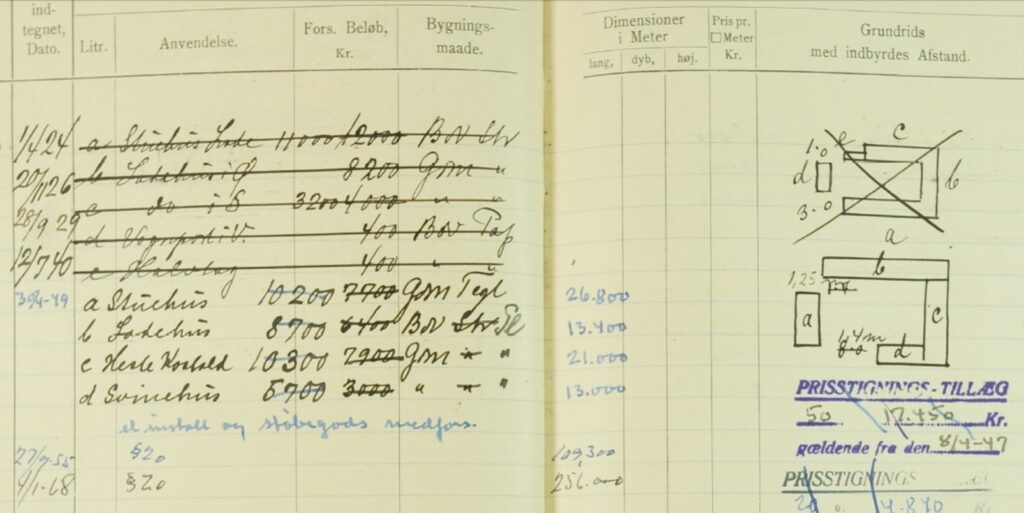 ind-
tegnet,
Dato.
Litr.
Anvendelse.
Fors. Beløb,
Kr.
Bygnings-
maade.
Dimensioner
i Meter
lang,
dyb,
høj.
Pris pr.
□ Meter
Kr.
Grundrids
med indbyrdes Afstand.
1/4 24 a Stuehus Lade 11000 12000 Bov Str
20/11 26 b Ladehus i Ø 8200 Gsm "
28/9 29 c do i S 3200 4000 " "
d Vognport i V. 400 Bov Pap
12/7 40 e Halvtag 400 " "
a Stuehus 10200 7700 Gsm Tegl 26.800
b Ladehus 8700 6400 Bov Str 13.400
c Heste Kostald 10300 7900 Gsm " " 21.000
d Svinehus 6700 3000 " " " 13.000
el install og støbegods medfors.
27/9-55 §20 109,300
9/1-68 §20 256.000
e
c
1.0
d
b
3.0
a
b
1,25
a
c
6,4m
8.0
d
PRISSTIGNINGS-TILLÆG
50 17.450 Kr.
gældende fra den 8/4-47
PRISSTIGNINGS
20 " 4.840 Kr